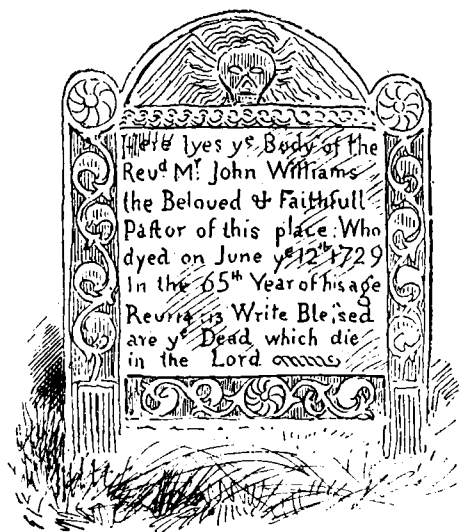 Here lyes yᵉ Body of the
Reuᵈ Mʳ. John Williams
the Beloued & Faithfull
Paſtor of this place: Who
dyed on June yᵉ 12ᵗʰ 1729
In the 65ᵗʰ Year of his age
13 Write Bleſsed
are yᵉ Dead which die
in the Lord